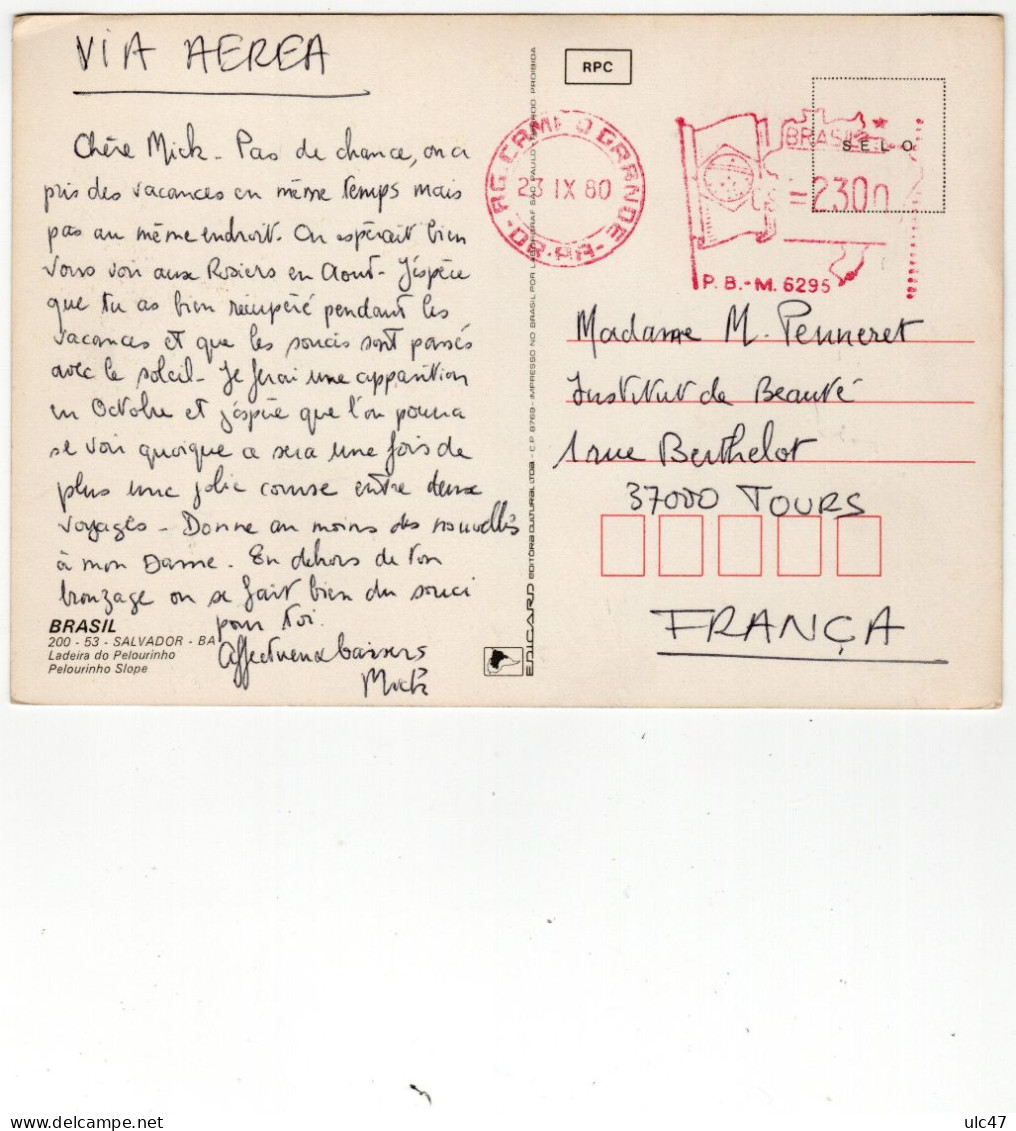 VIA AEREA
Chère Mick - Pas de chance, on a
pris des vacances en même temps mais
pas au même endroit. On espérait bien
vous voir aux Rosiers en Aout - J'espère
que tu as bien récupéré pendant les
vacances et que les soucis sont passés
avec le soleil - Je ferai une apparition
en Octobre et j'espère que l'on pourra
se voir quoique ce sera une fois de
plus une jolie course entre deux
voyages - Donne au moins des nouvelles
à mon Dame. En dehors de ton
bronzage on se fait bien du souci
pour toi.
Affectueux baisers
Mick
BRASIL
200 - 53 - SALVADOR - BA
Ladeira do Pelourinho
Pelourinho Slope
EDICARD EDITORA CULTURAL LTDA - C.P. 8769 - IMPRESSO NO BRASIL POR SÃO PAULO PROIBIDA
RPC
AG. CAMPO GRANDE
23 IX 80
DR-PA
BRASIL
SELO
=2300
P. B.-M. 6295
Madame M. Penneret
Institut de Beauté
1 rue Berthelot
37000 TOURS
FRANÇA
ulc47